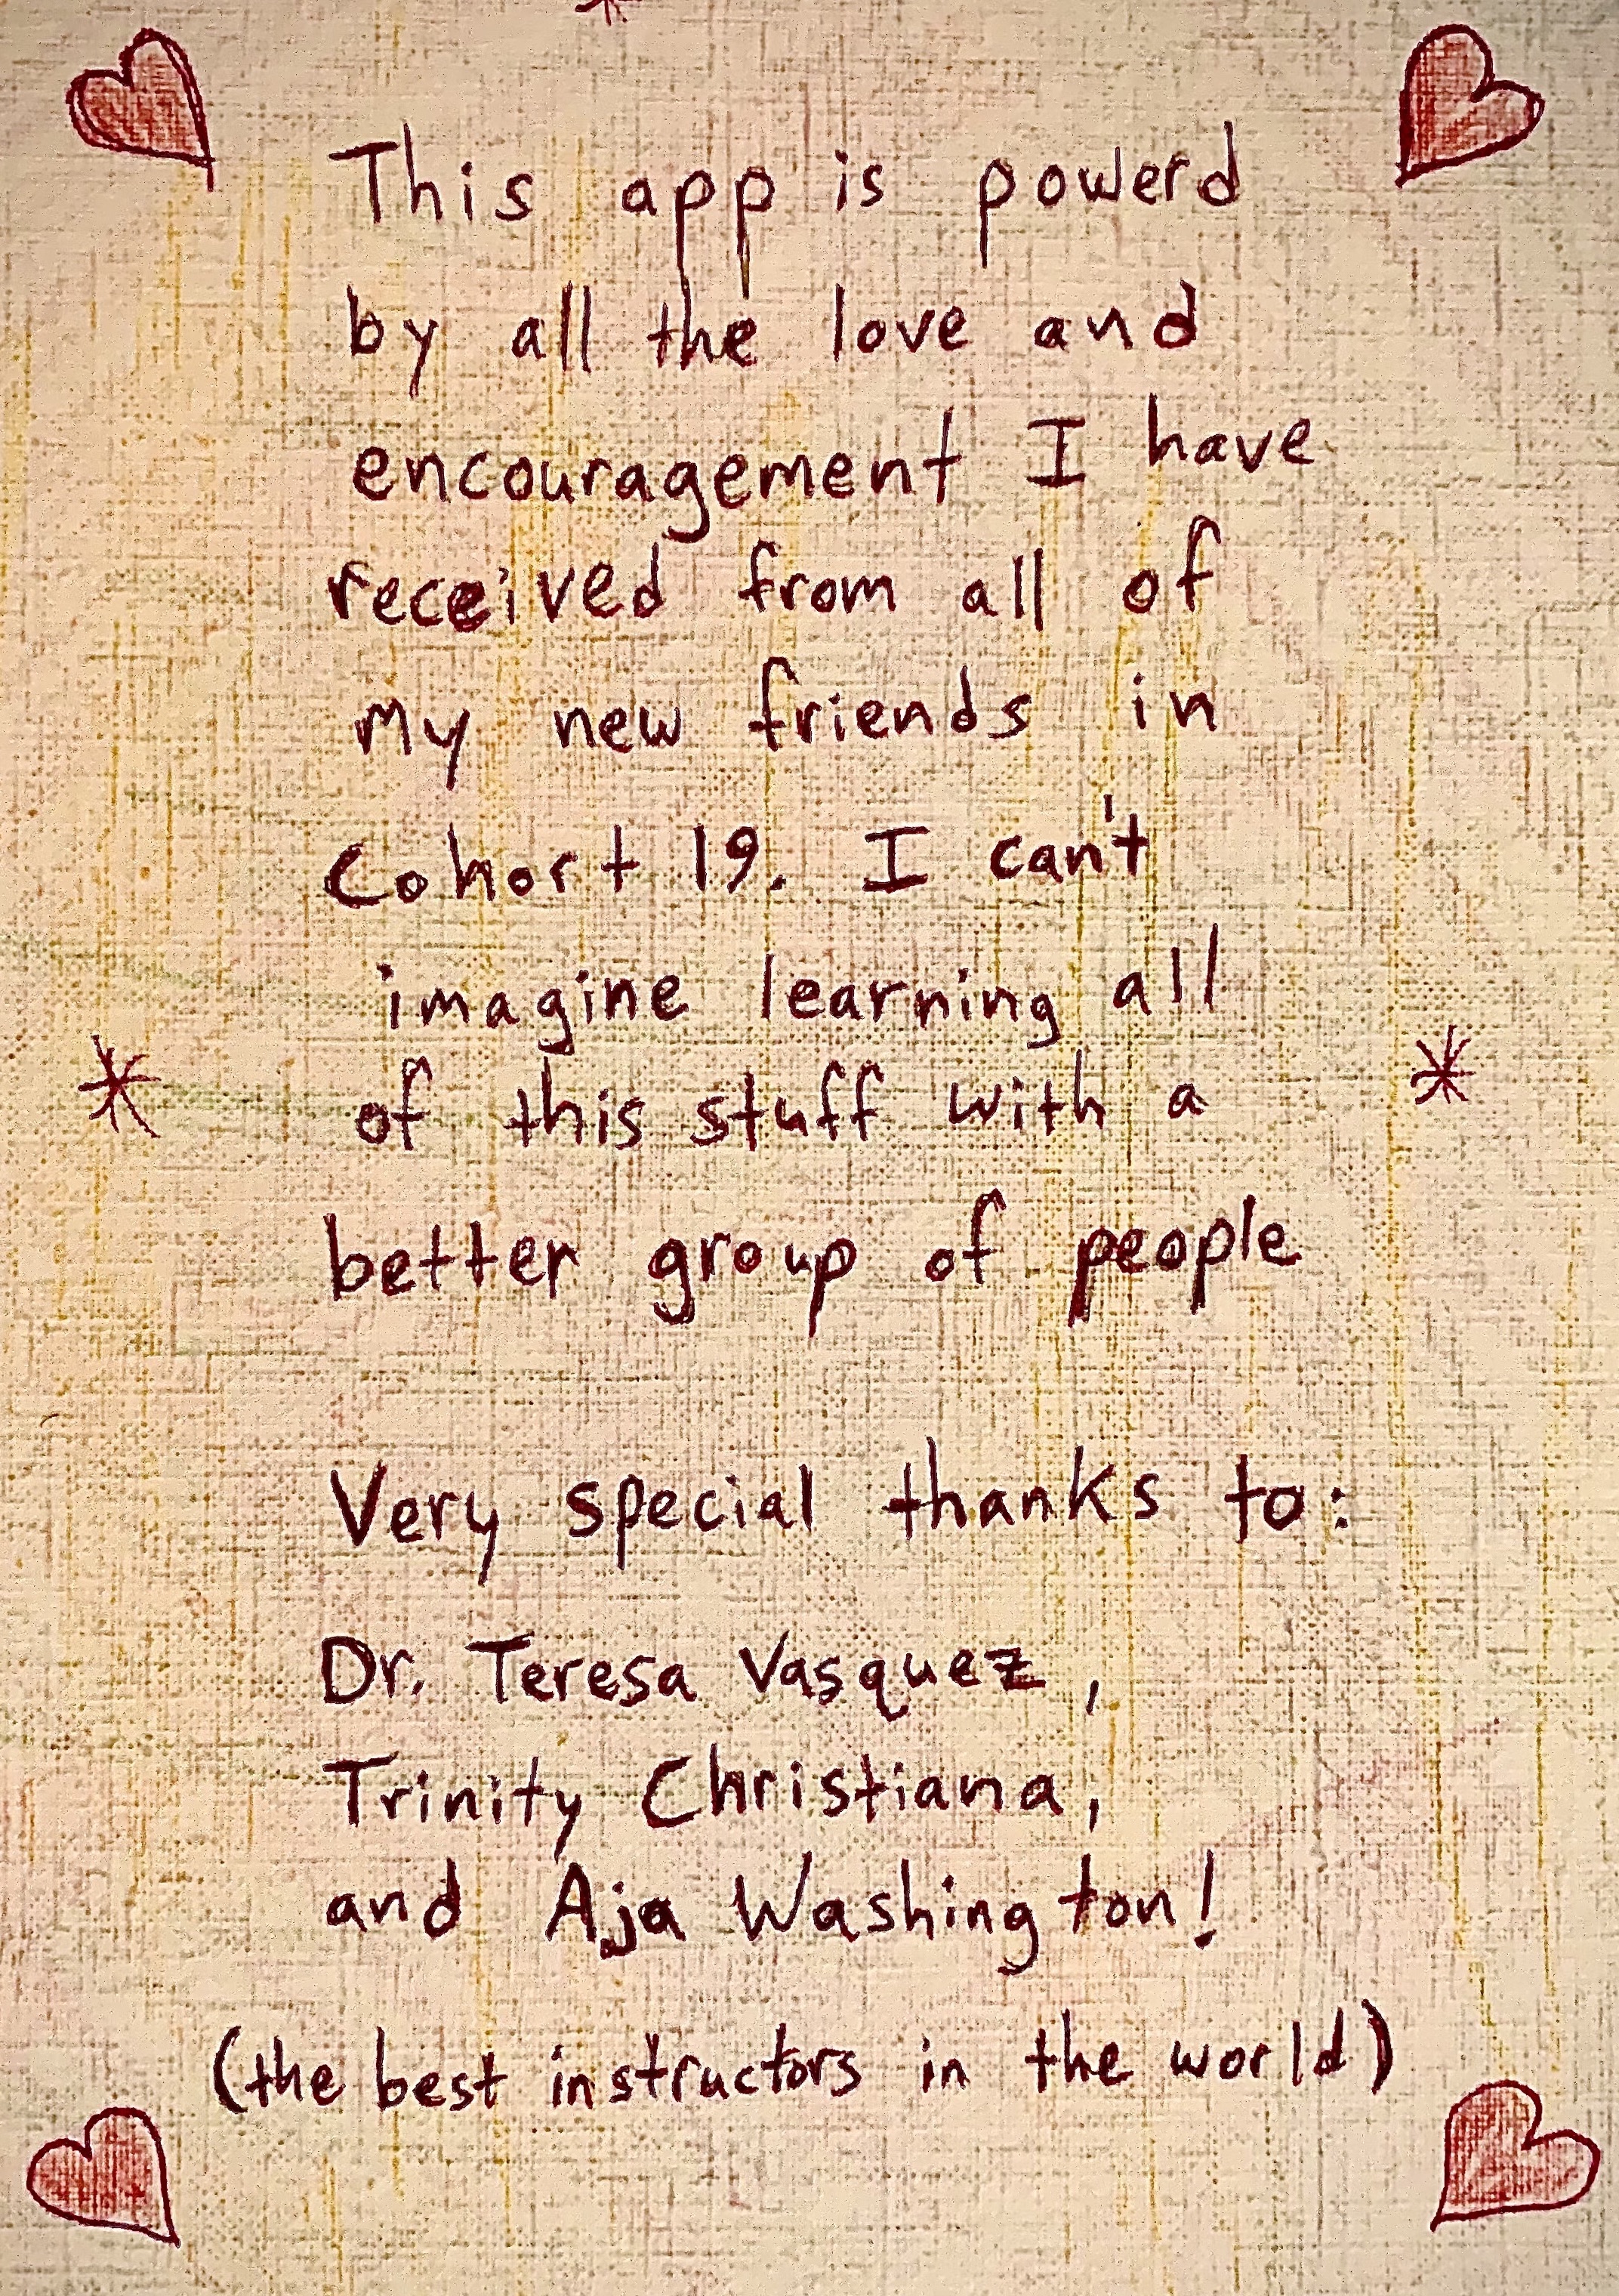 This app is powerd
by all the love and
encouragement I have
received from all of
my new friends in
Cohort 19. I can't
imagine learning all
of this stuff with a
better group of people
Very special thanks to:
Dr. Teresa Vasquez,
Trinity Christiana,
and Aja Washington!
(the best instructors in the world)